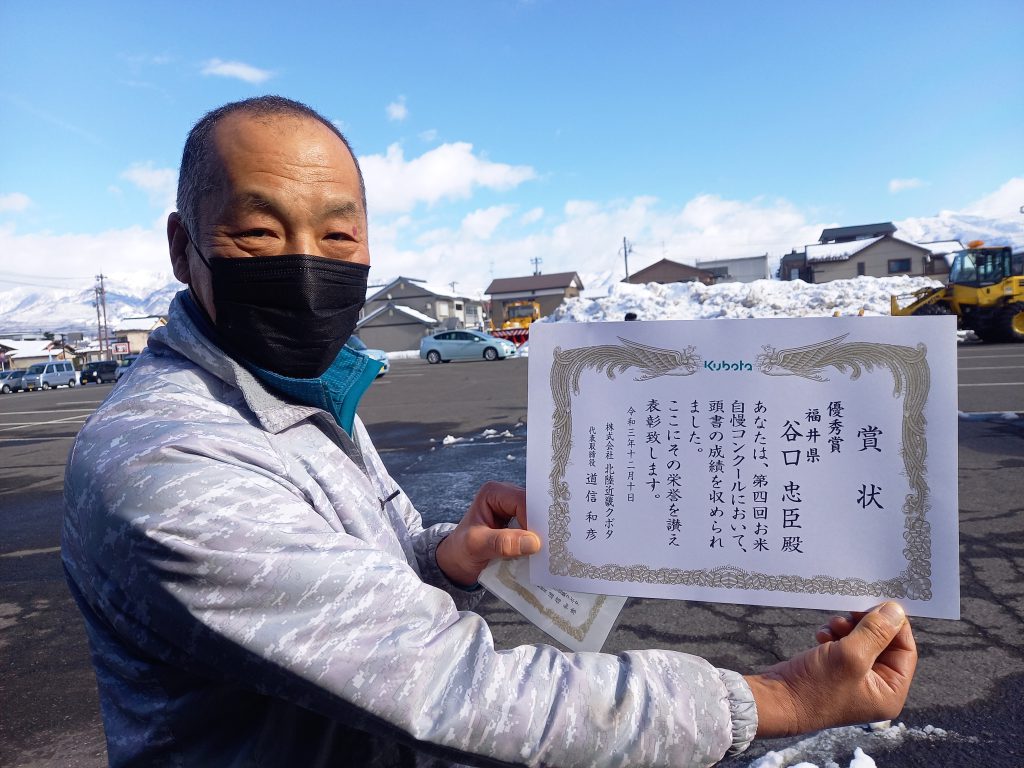 Kubota
賞状
優秀賞
福井県
谷口忠臣殿
あなたは、第四回お米
自慢コンクールにおいて、
頭書の成績を収められ
ました。
ここにその栄誉を讃え
表彰致します。
令和三年十二月十日
株式会社 北陸近畿クボタ
代表取締役 道信和彦